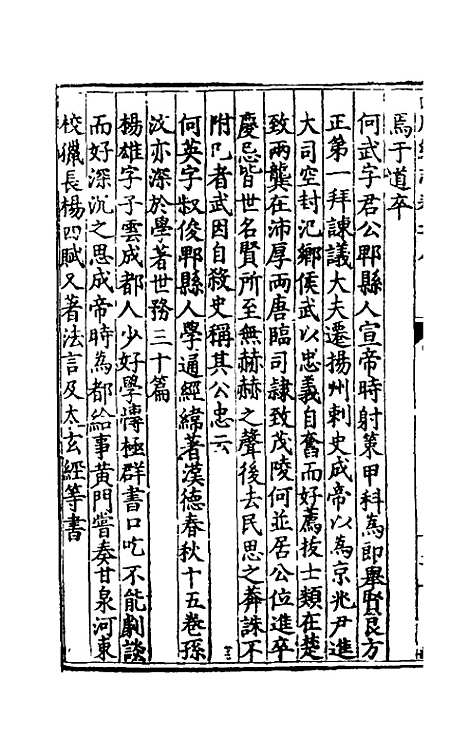 焉于道卒
何武字君公郫縣人宣帝時射策甲科為郎舉賢良方
正第一拜諫議大夫遷揚州刺史成帝以為京兆尹進
大司空封氾鄉侯武以忠義自奮而好薦拔士類在楚
致兩龔在沛厚兩唐臨司隷致茂陵何並居公位進卒
慶忌皆世名賢所至無赫赫之聲後去民思之莽誅不
附己者武因自殺史稱其公忠云
何英字叔俊郫縣人學通經緯著漢德春秋十五卷孫
汶亦深於學著世務三十篇
楊雄字子雲成都人少好學博極群書口吃不能劇談
而好深沉之思成帝時為都給事黄門嘗奏甘泉河東
校獵長楊四賦又著法言及太玄經等書